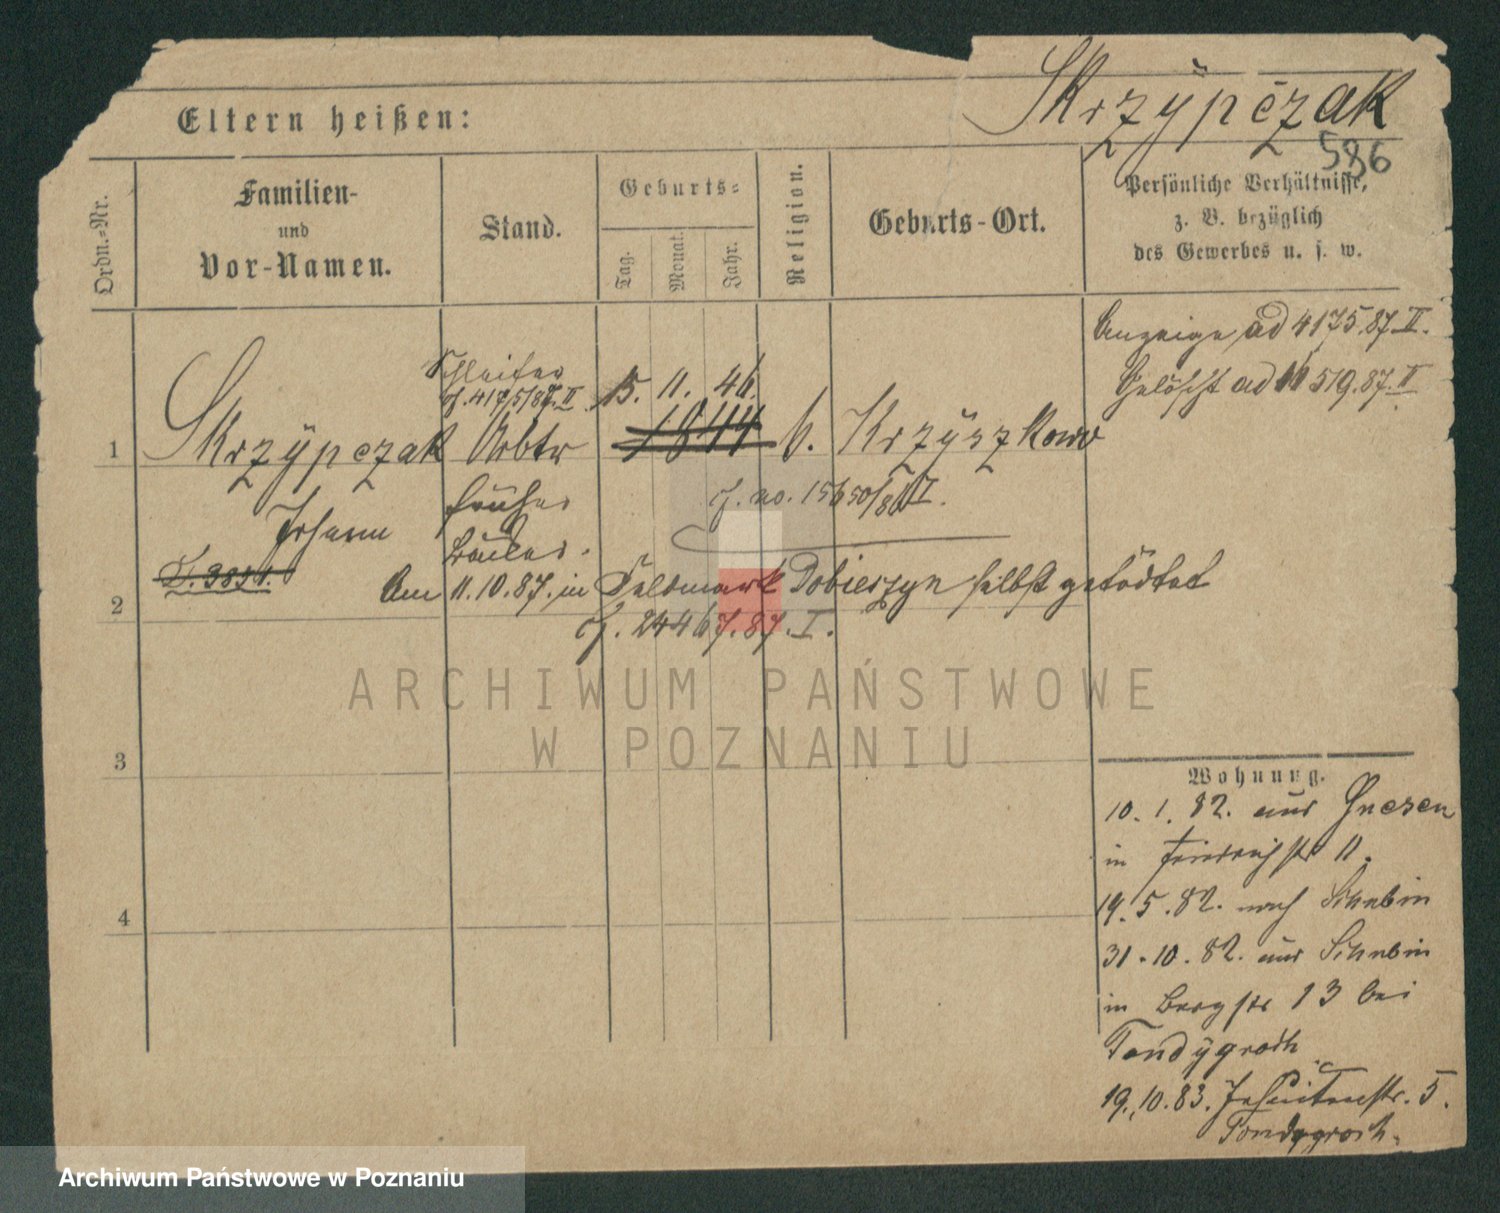 Skrzÿpczak
Eltern heißen:
586
Ordn.-Nr.
Familien-
und
Vor-Namen.
Stand.
Geburts-
Tag.
Monat.
Jahr.
Religion.
Geburts-Ort.
Persönliche Verhältnisse,
z. B. bezüglich
des Gewerbes u. s. w.
Anzeige ad 4175.87.II.
Gelöscht ad 16519.87.II
Schleifer
cf. 4175/87.II
15. 11. 46.
1 Skrzÿpczak Arbtr 1844 k. Krzÿszkowo
Johann
früher
cf. no. 15650/86 I.
2 Am 11.10.87. in Feldmark Dobieszyn selbst getödtet
cf. 24467.87.I.
3
4
Wohnung.
10. 1. 82. aus Gnesen
in Friedrichstr 11.
19. 5. 82. nach Schubin
31. 10. 82. aus Schubin
in Bergstr 13 bei
Tondÿgroch
19.10.83. Jesuitenstr. 5.
Tondygroch.
ARCHIWUM PAŃSTWOWE
W POZNANIU
Archiwum Państwowe w Poznaniu